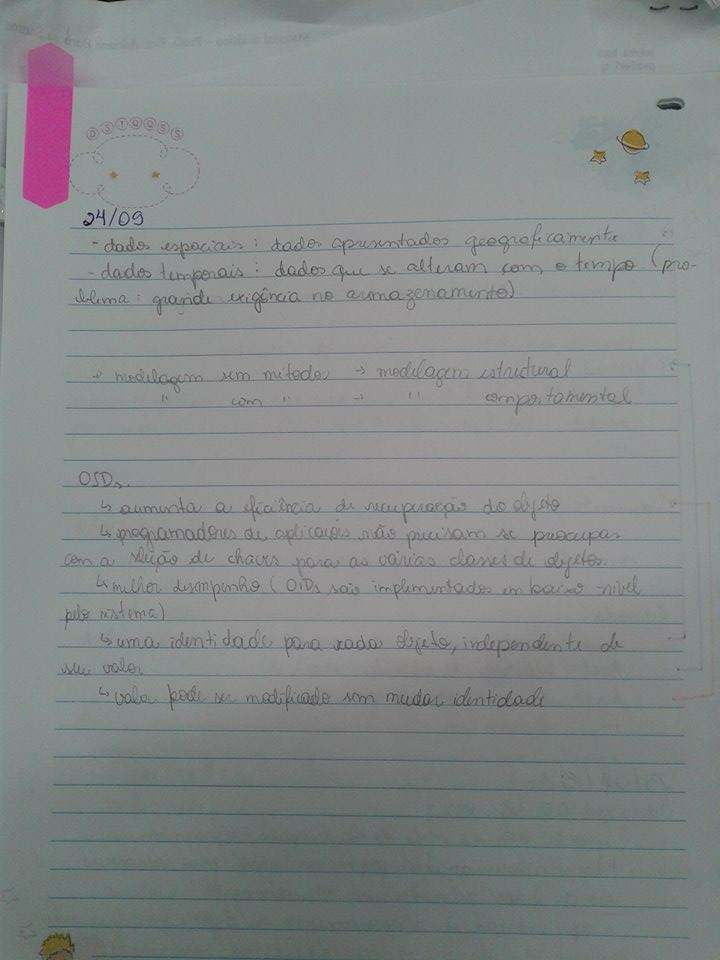 D S T Q Q S S
24/09
- dados espaciais : dados apresentados geograficamente
- dados temporais : dados que se alteram com o tempo (pro-
blema : grande exigência no armazenamento)
→ modelagem sem métodos → modelagem estrutural
" com " → " comportamental
OIDs.
↳ aumenta a eficiência de recuperação do objeto
↳ programadores de aplicações não precisam se preocupar
com a seleção de chaves para as várias classes de objetos.
↳ melhor desempenho ( OIDs são implementados em baixo nível
pelo sistema)
↳ uma identidade para cada objeto, independente de
seu valor
↳ valor pode ser modificado sem mudar identidade